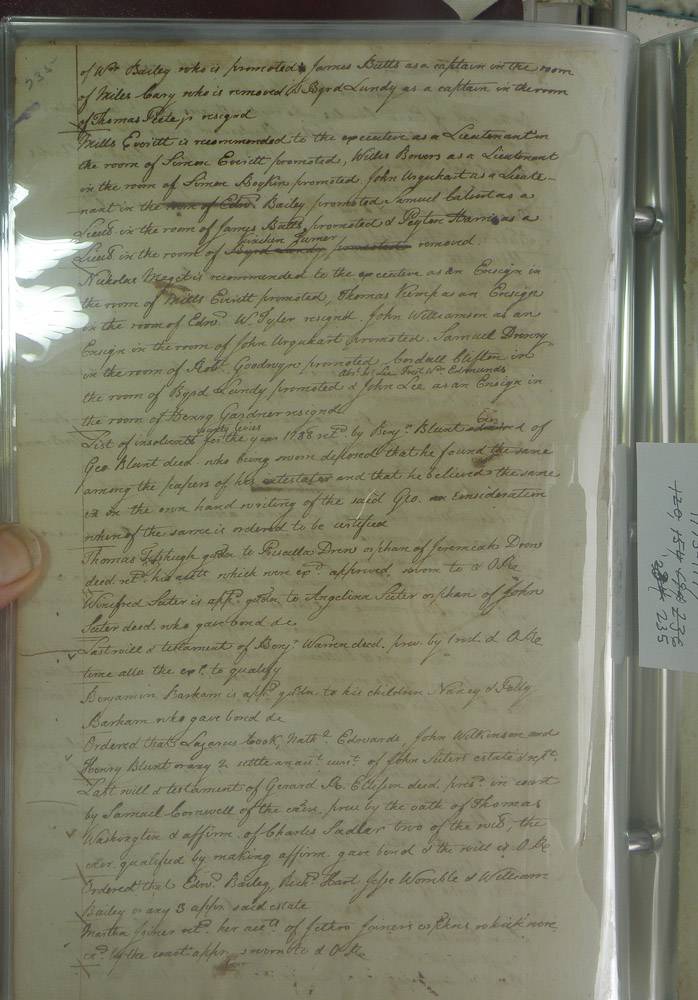 235
of Wm Bailey who is promoted & James Butts as a captain in the room
of Miles Cary who is removed & Byrd Lundy as a captain in the room
of Thomas Peete jr resignd
Mills Everitt is recommended to the executive as a Lieutenant in
the room of Simon Everitt promoted, Willis Bowers as a Lieutenant
in the room of Simon Boykin promoted John Urquhart as a Lieute-
nant in the room of Edwd Bailey promoted Samuel Calvert as a
Lieut in the room of James Butts promoted & Peyton Harris as a
Turner
Lieut in the room of Byrd Lundy promoted removed
Nickolas Maget is recommended to the executive as an Ensign in
the room of Mills Everitt promoted, Thomas Kemp as an Ensign
in the room of Edwd W. Tyler resignd. John Williamson as an
Ensign in the room of John Urquhart promoted. Samuel Drewry
in the room of Robt Goodwyn promoted Cordall Clifton in
Wm Edmunds
the room of Byrd Lundy promoted & John Lee as an Ensign in
the room of Henry Gardner resignd
county levies
List of insolvents for the year 1788 retd by Benja Blunt of
Geo Blunt deed who being sworn deposed that he found the same
among the papers of his intestator and that he believes the same
in the own hand writing of the said Geo. on Consideration
whereof the same is ordered to be certified
Thomas gdn to Priscilla Drew orphan of Jeremiah Drew
deed retd his acct which were exd approved sworn to & O.R.
Winifred Suter is appd gdn to Angelina Suter orphan of John
Suter deed. who gave bond &c
Last will & testament of Benja Warren deed. prov. by 1 wit. & O.R.
time allo the exr to qualify
Benjamin Barham is appd gdn to his children Nancy & Polly
Barham who gave bond &c
Ordered that Lazarus Cook, Nathl Edwards, John Wilkinson and
Henry Blunt or any 2 settle an acct curt of John Suters estate & rept
Last will & testament of Gerard R. Ellyson deed presd in court
by Samuel Cornwell of the exor. prov by the oath of Thomas
Washington & affirm. of Charles Sadlar two of the wits, the
exor qualified by making affirm. gave bond & the will is O.R.
Ordered that Edwd Bailey, Richd Hart Jesse Womble & William
Bailey or any 3 appr said estate
Martha Joiner retd her acct of Jethro Joiners orphans which were
exd by the court appr. sworn to & O.R.
235